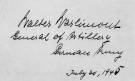 Walter Warlimont
General of Artillery
German Army
July 20, 1945